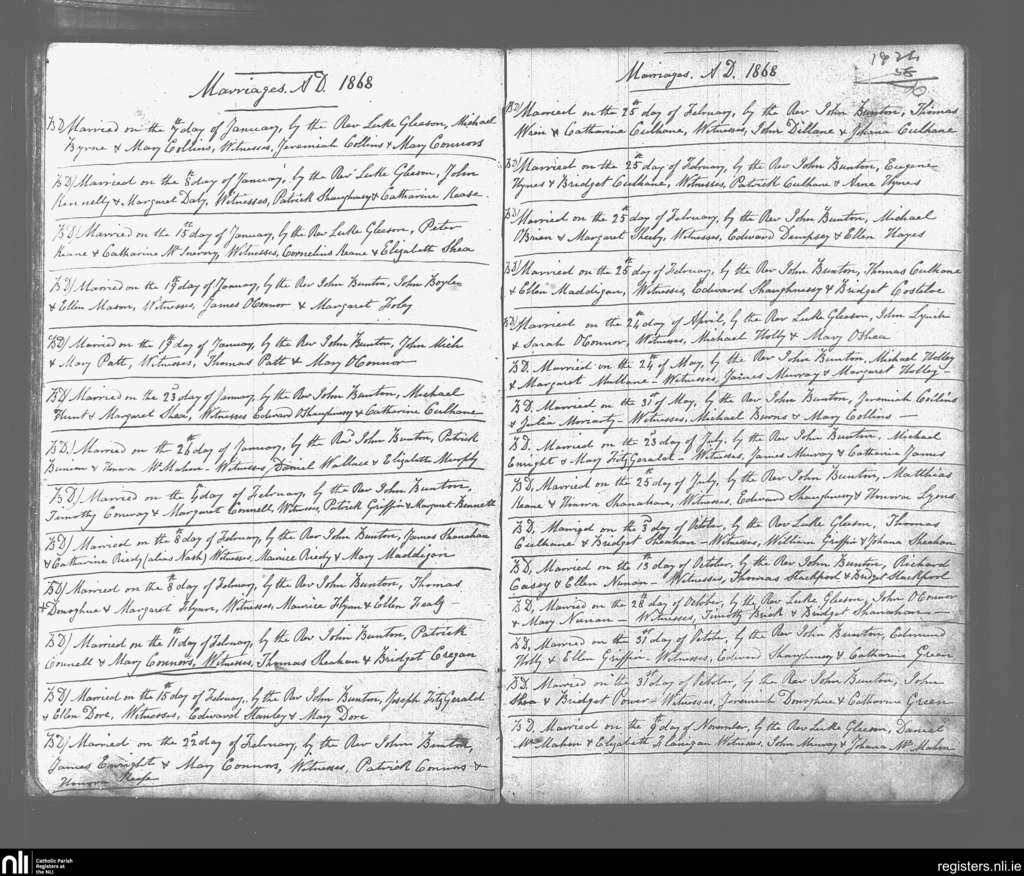 Marriages. A D. 1868
BD/ Married on the 7th day of January, by the Rev Luke Gleeson, Michael
Byrne & Mary Collins, Witnesses, Jeremiah Collins & Mary Connors
BD/ Married on the 8th day of January, by the Rev Luke Gleeson, John
Kennelly & Margaret Daly, Witnesses, Patrick Shaughnessy & Catharine Kease.
BD/ Married on the 15th day of January, by the Rev Luke Gleeson, Peter
Keane & Catharine Mc Inerny, Witnesses, Cornelius Keane & Elizabeth Shea
BD/ Married on the 19th day of January, by the Rev John Bunton, John Boyle
& Ellen Mason, Witnesses, James OConnor & Margaret Foley
BD/ Married on the 19th day of January, by the Rev John Bunton, John Mich
& Mary Patt, Witnesses, Thomas Patt & Mary OConnor
BD/ Married on the 23rd day of January, by the Rev John Bunton, Michael
Hunt & Margaret Shea, Witnesses Edward OShaughnessy & Catharine Culhane
BD/ Married on the 26th day of January, by the Revd John Bunton, Patrick
& Honora Mc Mahon - Witnesses, Daniel Wallace & Elizabeth Murphy
BD/ Married on the day of February, by the Rev John Bunton,
Timothy Conway & Margaret Connell, Witnesses, Patrick Griffin & Margaret Bennett
BD/ Married on the 8th day of February, by the Rev John Bunton, James Shanahan
& Catharine Riedy (alias Nash) Witnesses, Maurice Riedy & Mary Maddigan
BD/ Married on the 8th day of February, by the Rev John Bunton, Thomas
& Donoghue & Margaret Flynn, Witnesses, Maurice Flynn & Ellen Healy -
BD/ Married on the 11th day of February, by the Rev John Bunton, Patrick
Connell & Mary Connors, Witnesses, Thomas Sheahan & Bridget Cregan
BD/ Married on the 15th day of February, by the Rev John Bunton, Joseph FitzGerald
& Ellen Dore, Witnesses, Edward Stanley & Mary Dore
BD/ Married on the 22nd day of February, by the Rev John Bunton,
James Enright & Mary Connors, Witnesses, Patrick Connors &
Honora Keefe
Marriages. A D. 1868
BD/ Married on the 25th day of February, by the Rev John Bunton, Thomas
& Catharine Culhane, Witnesses, John Dillane & Johana Culhane
BD/ Married on the 25th day of February, by the Rev John Bunton, Eugene
Hynes & Bridget Culhane, Witnesses, Patrick Culhane & Anne Hynes
BD/ Married on the 25th day of February, by the Rev John Bunton, Michael
OBrien & Margaret Sheehy, Witnesses, Edward Dempsey & Ellen Hayes
BD/ Married on the 25th day of February, by the Rev John Bunton, Thomas Culhane
& Ellen Maddigan, Witnesses, Edward Shaughnessy & Bridget Costeloe
BD/ Married on the 24th day of April, by the Rev Luke Gleeson, John Lynch
& Sarah OConnor, Witnesses, Michael Holly & Mary OShea
BD. Married on the 24th of May, by the Rev John Bunton, Michael Holley
& Margaret Mullane - Witnesses, James Murray & Margaret Holley -
BD. Married on the 31st of May, by the Rev John Bunton, Jeremiah Collins
& Julia Moriarty - Witnesses, Michael Burns & Mary Collins -
BD. Married on the 23rd day of July, by the Rev John Bunton, Michael
Enright & Mary FitzGerald - Witnesses, James Murray & Catharine James
BD, Married on the 25th day of July, by the Rev John Bunton, Matthias
Keane & Honora Shanahan, Witnesses, Edward Shaughnessy & Honora Lyons
BD. Married on the 3rd day of October, by the Rev Luke Gleeson, Thomas
Culhane & Bridget Sheahan - Witnesses, William Griffin & Johana Sheahan
BD, Married on the 13th day of October, by the Rev John Bunton, Richard
Casey & Ellen Nunan - Witnesses, Thomas Stackpool & Bridget Stackpool
BD, Married on the 28th day of October, by the Rev Luke Gleeson, John OConnor
& Mary Nunan - Witnesses, Timothy Brick & Bridget Shanahan -
BD, Married on the 31st day of October, by the Rev John Bunton, Edmund
Holly & Ellen Griffin, Witnesses, Edward Shaughnessy & Catharine Green
BD. Married on the 31st day of October, by the Rev John Bunton, John
Shea & Bridget Power - Witnesses, Jeremiah Donoghue & Catharine Green
BD. Married on the 9th day of November, by the Rev Luke Gleeson, Daniel
Mc Mahon & Elizabeth Flanigan Witnesses, John Murray & Johana Mc Mahon
nli
Catholic Parish
Registers at
the NLI
registers.nli.ie